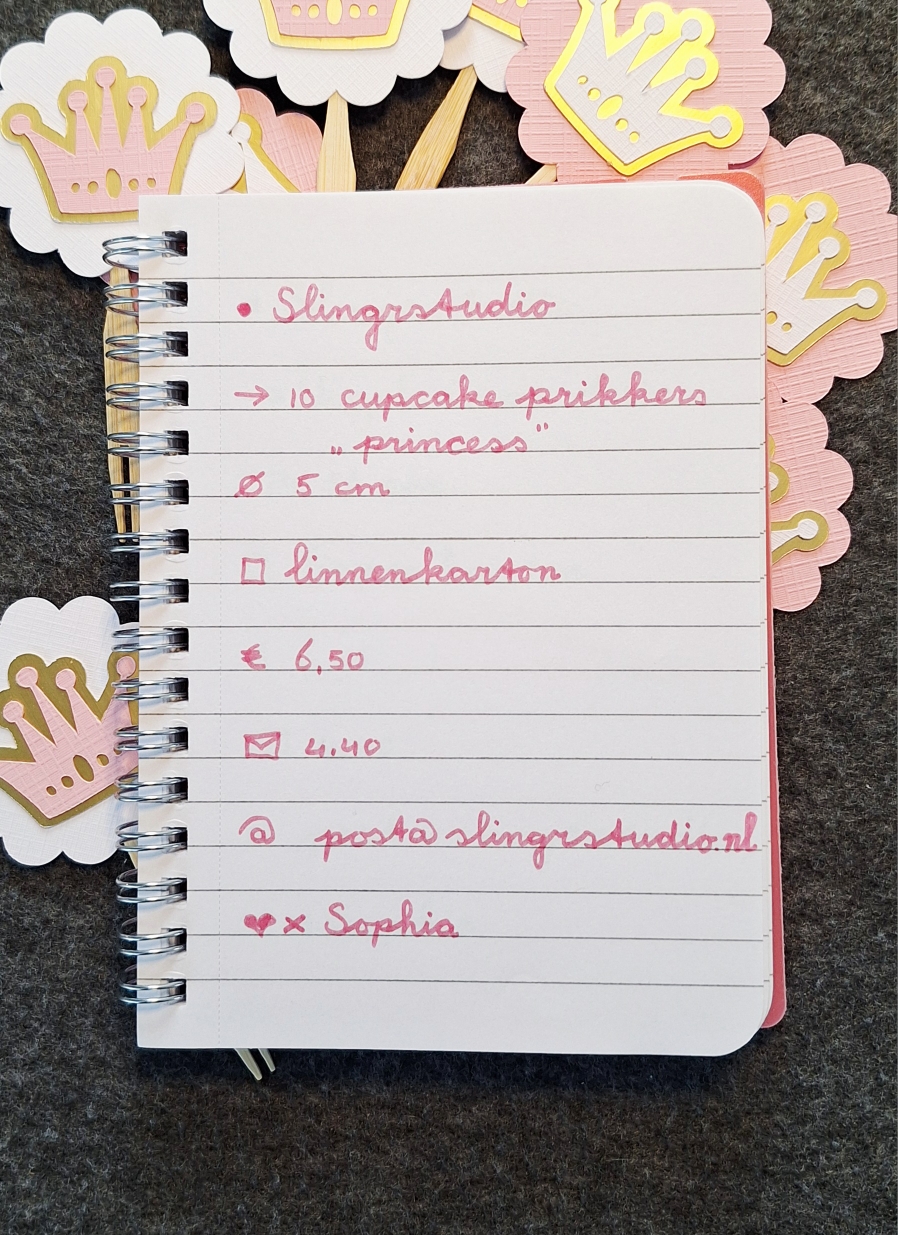 • Slingrstudio
→ 10 cupcake prikkers
„princess"
Ø 5 cm
□ linnenkarton
€ 6,50
✉ 4.40
@ post@slingrstudio.nl
♥ x Sophia